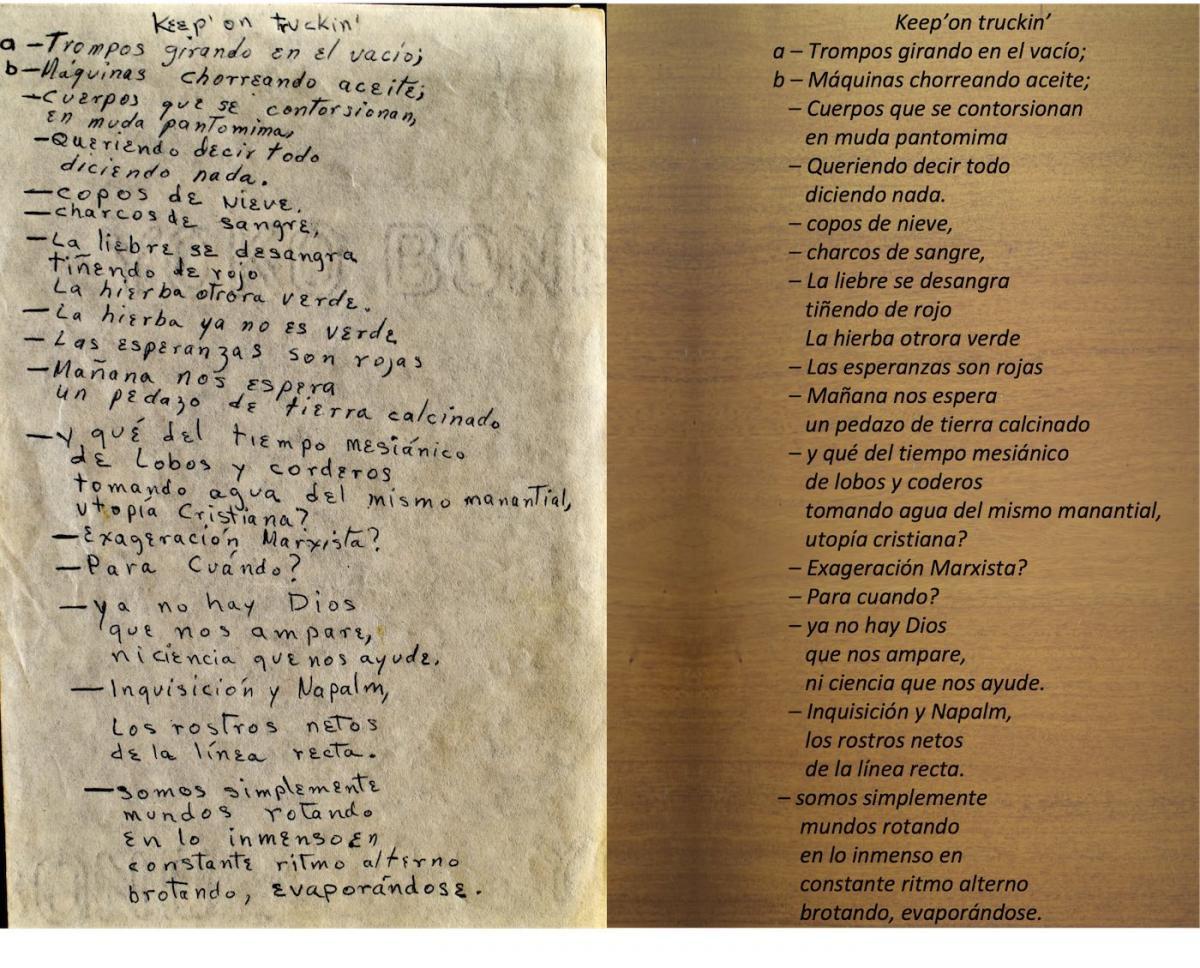 Keep' on truckin'
a – Trompos girando en el vacío;
b – Máquinas chorreando aceite;
– Cuerpos que se contorsionan,
en muda pantomima,
– Queriendo decir todo
diciendo nada.
– copos de nieve.
– charcos de sangre,
– La liebre se desangra
tiñendo de rojo
La hierba otrora verde.
– La hierba ya no es verde
– Las esperanzas son rojas
– Mañana nos espera
un pedazo de tierra calcinado
– y qué del tiempo mesiánico
de Lobos y corderos
tomando agua del mismo manantial,
utopía Cristiana?
– Exageración Marxista?
– Para Cuándo?
– ya no hay Dios
que nos ampare,
ni ciencia que nos ayude.
– Inquisición y Napalm,
Los rostros netos
de la línea recta.
– somos simplemente
mundos rotando
en lo inmenso en
constante ritmo alterno
brotando, evaporándose.
Keep'on truckin'
a – Trompos girando en el vacío;
b – Máquinas chorreando aceite;
– Cuerpos que se contorsionan
en muda pantomima
– Queriendo decir todo
diciendo nada.
– copos de nieve,
– charcos de sangre,
– La liebre se desangra
tiñendo de rojo
La hierba otrora verde
– Las esperanzas son rojas
– Mañana nos espera
un pedazo de tierra calcinado
– y qué del tiempo mesiánico
de lobos y coderos
tomando agua del mismo manantial,
utopía cristiana?
– Exageración Marxista?
– Para cuando?
– ya no hay Dios
que nos ampare,
ni ciencia que nos ayude.
– Inquisición y Napalm,
los rostros netos
de la línea recta.
– somos simplemente
mundos rotando
en lo inmenso en
constante ritmo alterno
brotando, evaporándose.